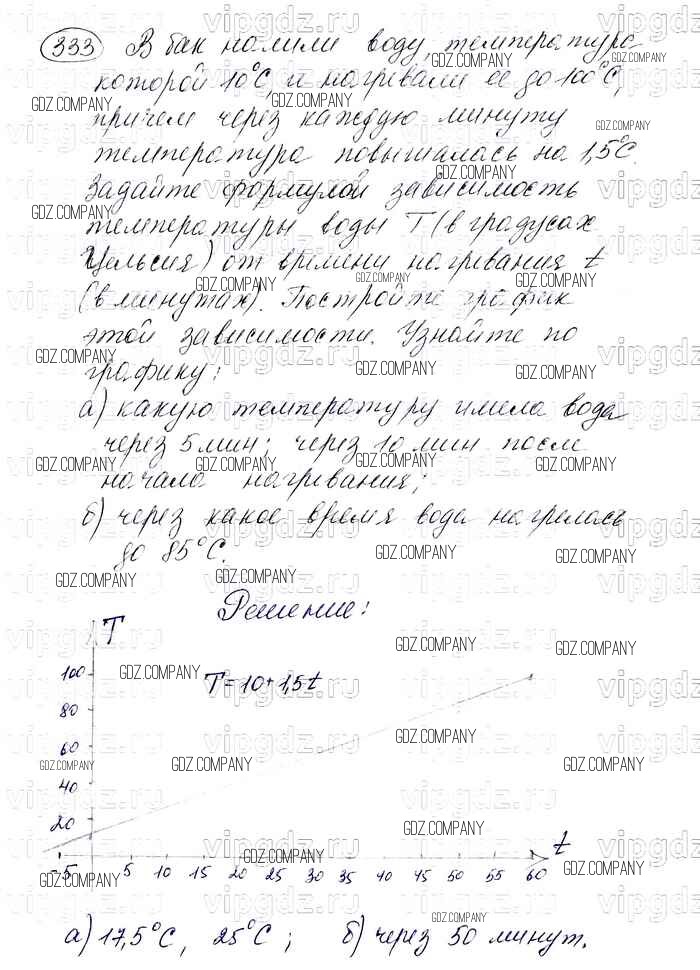 333 В бак налили воду, температура
которой 10°С, и нагревали её до 100°С,
причем через каждую минуту
температура повышалась на 1,5°С.
Задайте формулой зависимость
температуры воды Т (в градусах
Цельсия) от времени нагревания t
(в минутах). Постройте график
этой зависимости. Узнайте по
графику:
а) какую температуру имела вода
через 5 мин; через 10 мин после
начала нагревания;
б) через какое время вода нагрелась
до 85°С.
Решение:
T
100
T=10+1,5t
80
60
40
20
t
-5 5 10 15 20 25 30 35 40 45 50 55 60
а) 17,5°С, 25°С; б) через 50 минут.
GDZ.COMPANY
vipgdz.ru